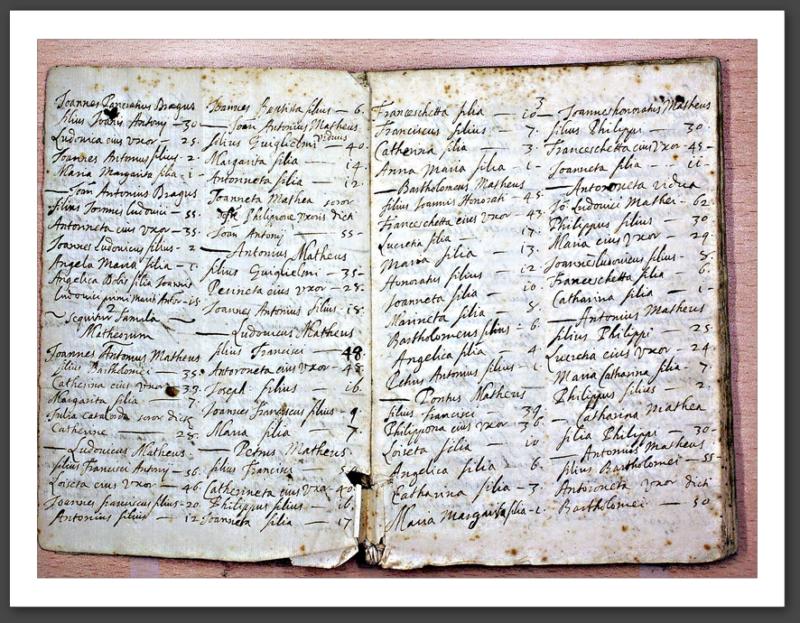 Joannes Ponciatus Bragus
filius Joannis Antonij — 30
Ludovica eius uxor — 25.
Joannes Antonius filius — 2
Maria Margarita filia — 1
— Joan Antonius Bragus
filius Joannis Ludovici — 55.
Antonneta eius uxor — 35.
Joannes Ludovicus filius — 2
Angela Maria filia — 1.
Angelica filia Joannis
Ludovici — 15
~ Sequitur familia ~
Matheorum
Joannes Antonius Matheus
filius Bartholomei — 35.
Catherina eius uxor — 33.
Margarita filia — 7.
Julia soror dicte
Catherine — 28
— Ludovicus Matheus
filius Francisci Antonij — 56.
Loiseta eius uxor — 46
Joannes franciscus filius — 20
Antonius filius — 12
Joannes Baptista filius — 6.
— Joan Antonius Matheus
filius Guiglielmi viduus — 40.
Margarita filia — 14
Antonneta filia — 12.
Joanneta Mathea soror
Philippone uxoris dicti
Joan Antonij — 55 —
— Antonius Matheus
filius Guiglielmi — 35 —
Perineta eius uxor — 28.
Joannes Antonius filius — 18.
— Ludovicus Matheus
filius Francisci — 48.
Antoroneta eius uxor — 48.
Joseph filius — 16.
Joannes Franciscus filius — 9
Maria filia — 7
— Petrus Matheus
filius Francisci
Catherineta eius uxor — 40.
Philippus filius — 16.
Joanneta filia — 17
3
Franceschetta filia — 10
Franciscus filius — 7.
Catherina filia — 3.
Anna Maria filia — 1 —
— Bartholomeus Matheus
filius Joannis Honorati — 45 —
Franceschetta eius uxor — 43.
Lucretia filia — 17.
Maria filia — 13.
Honoratus filius — 12
Joanneta filia — 10.
Marineta filia — 8.
Bartholomeus filius — 6.
Angelica filia — 4
Petrus Antonius filius — 1.
— Pontus Matheus
filius Francisci — 39.
Philippona eius uxor — 36.
Loiseta filia — 10
Angelica filia — 6.
Catharina filia — 3
Maria Margarita filia — 1.
— Joannes honoratus Matheus
filius Philippi — 30.
Franceschetta eius uxor — 45 —
Joanneta filia — 11 —
— Antoroneta vidua
Jo: Ludovici Mathei — 62
Philippus filius — 30
Maria eius uxor — 29.
Joannes Ludovicus filius — 8.
Franceschetta filia — 6.
Catharina filia — 1 —
— Antonius Matheus
filius Philippi — 25
Lucretia eius uxor — 24.
Maria Catharina filia — 7
Philippus filius — 2.
— Catharina Mathea
filia Philippi — 30 —
— Antonius Matheus
filius Bartholomei — 55 —
Antoroneta uxor dicti
Bartholomei — 50